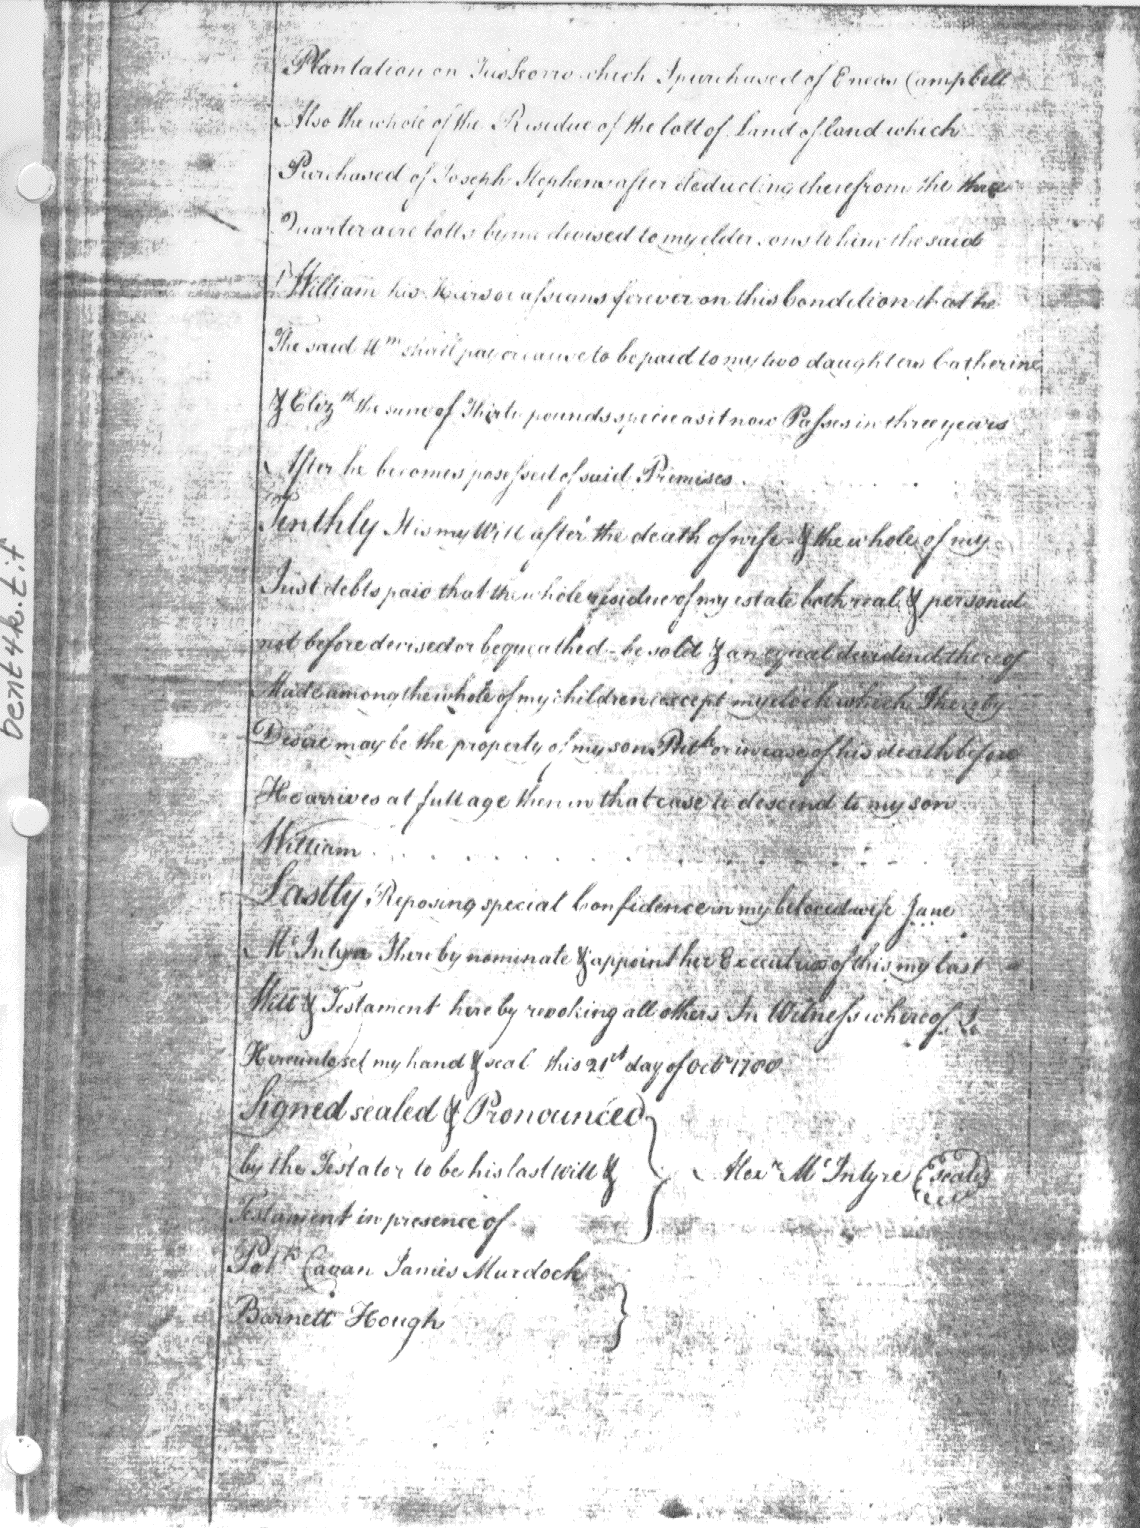 Plantation on Tuskorro which I purchased of Eneas Campbell
Also the whole of the Residue of the lott of Land of land which
Purchased of Joseph Stephens after deducting therefrom the three
Quarter acre lotts by me devised to my elder sons to him the said
William his Heirs or assigns forever on this Condition that he
The said Wm shall pay or cause to be paid to my two daughters Catherine
& Elizth the sum of Thirty pounds specie as it now Passes in three years
After he becomes possessed of said Premises
Tenthly It is my Will after the death of wife & the whole of my
Just debts paid that the whole residue of my estate both real & personal
not before devised or bequeathed - be sold & an equal dividend thereof
Made among the whole of my children except my clock which I hereby
Desire may be the property of my son or in case of his death before
He arrives at full age then in that case to descend to my son
William
Lastly Reposing special Confidence in my beloved wife Jane
Mc Intyre I hereby nominate & appoint her Executrix of this my last
Will & Testament hereby revoking all others In Witness whereof I
Hereunto set my hand & seal this 21st day of Octr
Signed sealed & Pronounced
by the Testator to be his last will &
Testament in presence of
Alexr Mc Intyre seal
Patk Cavan James Murdoch
Barnett Hough
bent4k.tif